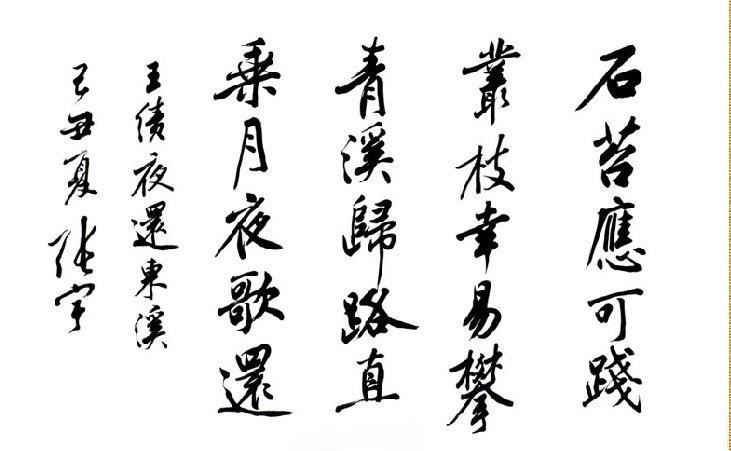 石苔應可踐
叢枝幸易攀
青溪歸路直
乘月夜歌還
王績夜還東溪
己丑夏 張宇